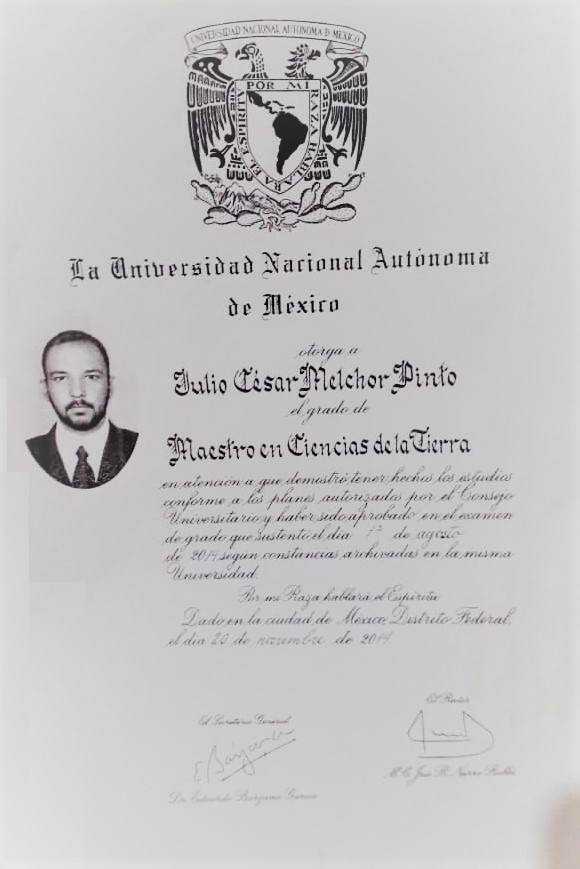 UNIVERSIDAD NACIONAL AUTONOMA D MEXICO
POR MI RAZA HABLARA EL ESPIRITU
La Universidad Nacional Autónoma
de México
otorga a
Julio César Melchor Pinto
el grado de
Maestro en Ciencias de la Tierra
en atención a que demostró tener hechos los estudios
conforme a los planes autorizados por el Consejo
Universitario y haber sido aprobado en el examen
de grado que sustentó el día 1º de agosto
de 2014 según constancias archivadas en la misma
Universidad.
Por mi Raza hablará el Espíritu
Dado en la ciudad de México, Distrito Federal,
el día 20 de noviembre de 2014
El Rector
El Secretario General
E Bárzana
Dr. Eduardo Bárzana García